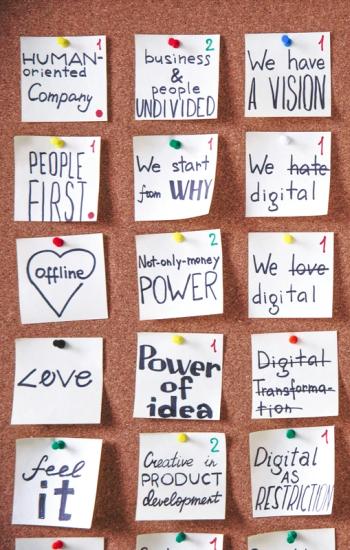 1
HUMAN-
oriented
Company
2
business
&
people
UNDIVIDED
1
We have
A VISION
1
PEOPLE
FIRST
1
We start
from WHY
1
We hate
digital
offline
2
Not-only-money
POWER
1
We love
digital
Love
1
Power
of
idea
1
Digital
Transforma-
tion
feel
it
2
Creative in
PRODUCT
development
1
Digital
AS
RESTRICTION
1
1